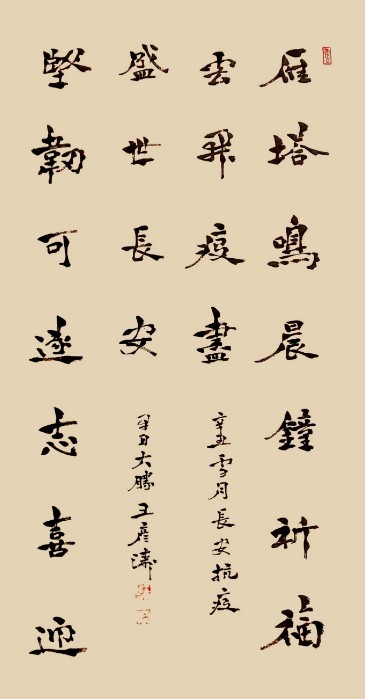 雁塔鳴晨鐘祈福
雲飛疫盡
辛丑雪月長安抗疫
堅韌可遂志喜迎
盛世長安
早日大勝王彦濤